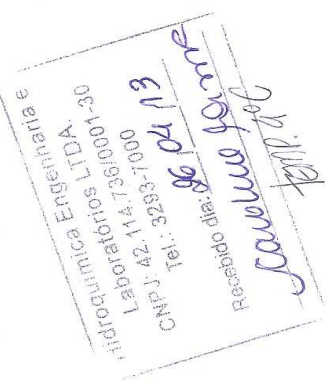 Hidroquímica Engenharia e
Laboratórios LTDA.
CNPJ: 42.114.736/0001-30
Tel.: 32937000
Recebido dia: 26 04 13